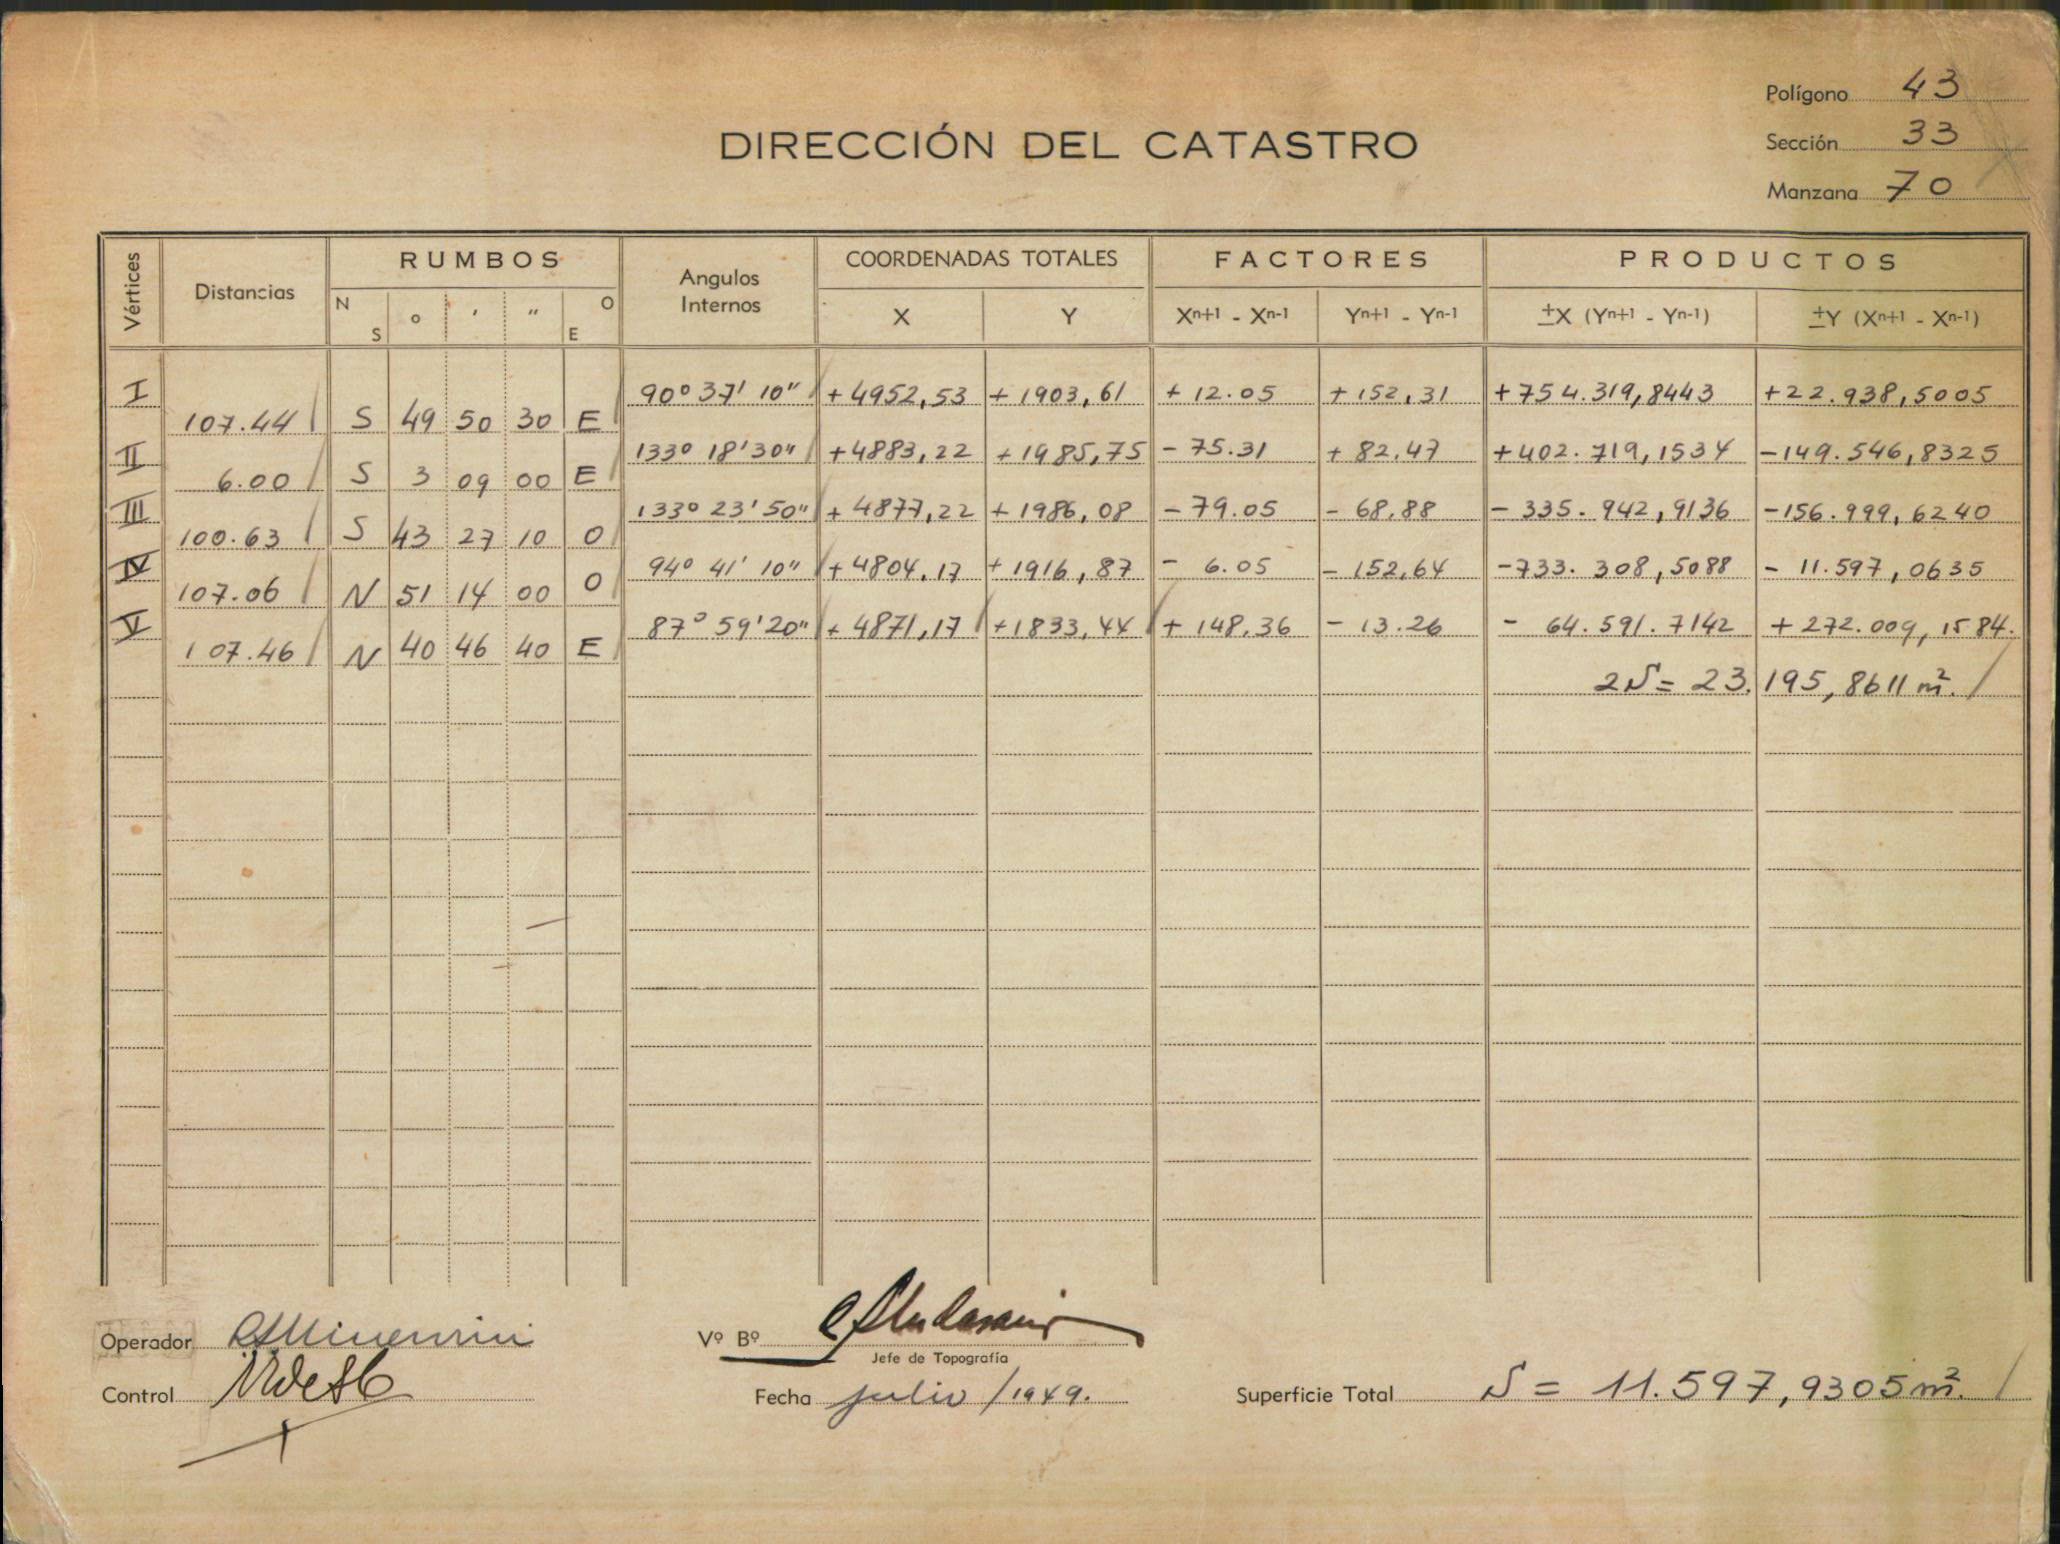 Polígono 43
DIRECCIÓN DEL CATASTRO
Sección 33
Manzana 70
Vértices Distancias RUMBOS Angulos Internos COORDENADAS TOTALES FACTORES PRODUCTOS
N S ° ' " O E X Y Xn+1 - Xn-1 Yn+1 - Yn-1 ±X (Yn+1 - Yn-1) ±Y (Xn+1 - Xn-1)
I 90° 37' 10" +4952,53 +1903,61 +12.05 +152,31 +754.319,8443 +22.938,5005
107.44 S 49 50 30 E
II 133° 18' 30" +4883,22 +1985,75 -75.31 +82.47 +402.719,1534 -149.546,8325
6.00 S 3 09 00 E
III 133° 23' 50" +4877,22 +1986,08 -79.05 -68.88 -335.942,9136 -156.999,6240
100.63 S 43 27 10 O
IV 94° 41' 10" +4804,17 +1916,87 -6.05 -152,64 -733.308,5088 -11.597,0635
107.06 N 51 14 00 O
V 87° 59' 20" +4871,17 +1833,44 +148,36 -13.26 -64.591.7142 +272.009,1584.
107.46 N 40 46 40 E
2S = 23.195,8611 m².
Operador
Vº Bº
Jefe de Topografía
Control
Fecha julio/1949.
Superficie Total S = 11.597,9305 m².